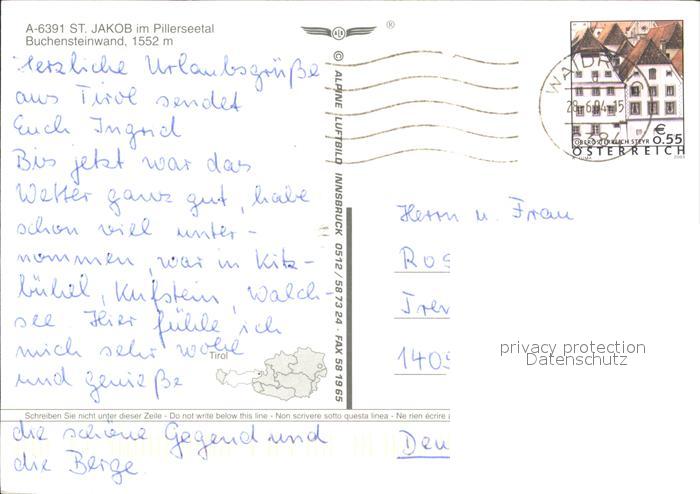 A-6391 ST. JAKOB im Pillerseetal
Buchensteinwand, 1552 m
Herzliche Urlaubsgrüße
aus Tirol sendet
Euch Ingrid
Bis jetzt war das
Wetter ganz gut, habe
schon viel unter-
nommen, war in Kitz-
bühel, Kufstein, Walch-
see Hier fühle ich
mich sehr wohl
und genieße
die schöne Gegend und
die Berge.
Tirol
Schreiben Sie nicht unter dieser Zeile - Do not write below this line - Non scrivere sotto questa linea - Ne rien écrire
®
© ALPINE LUFTBILD INNSBRUCK 0512/58 73 24 · FAX 58 19 65
28.6.04-15
OBERÖSTERREICH STEYR
€
0.55
ÖSTERREICH
Herrn u. Frau
Ros
Trev
1409
privacy protection
Datenschutz